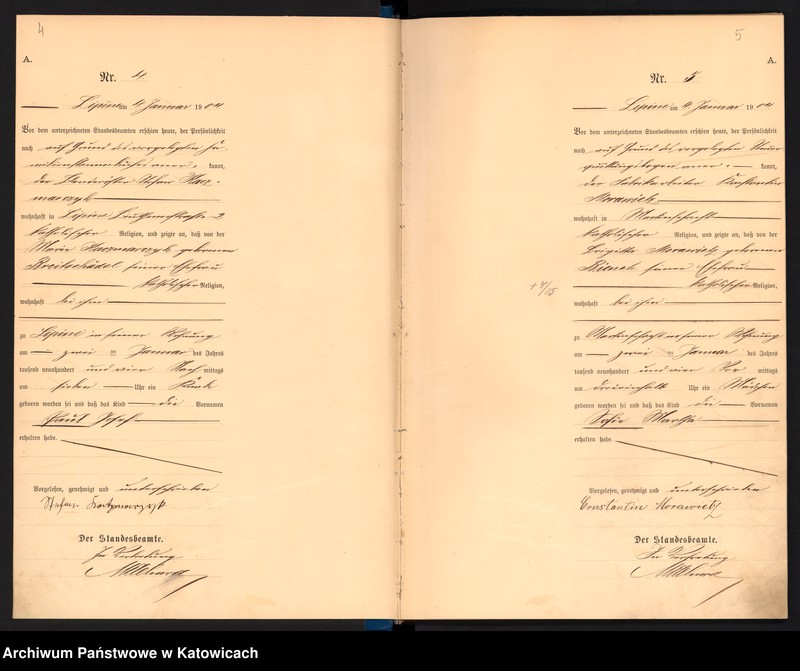 4
A.
Nr. 4
Lipine am 4 Januar 1904
Vor dem unterzeichneten Standesbeamten erschien heute, der Persönlichkeit
nach auf Grund des vorgelegten
kannt,
der Stefan Kacz-
marczyk
wohnhaft in Lipine 2
katholischer Religion, und zeigte an, daß von der
Marie Kaczmarczyk geborenen
Breitschädel seiner Ehefrau
katholischer Religion,
wohnhaft bei ihm
zu Lipine in seiner Wohnung
am zwei ten Januar des Jahres
tausend neunhundert und vier Nach mittags
um sieben Uhr ein Knabe
geboren worden sei und daß das Kind die Vornamen
Paul Josef
erhalten habe.
Vorgelesen, genehmigt und unterschrieben
Stefan
Der Standesbeamte.
In Vertretung
5
A.
Nr. 5
Lipine am 4 Januar 1904
Vor dem unterzeichneten Standesbeamten erschien heute, der Persönlichkeit
nach auf Grund des vorgelegten
kannt,
der Fabrikarbeiter Konstantin
Morawietz
wohnhaft in
katholischer Religion, und zeigte an, daß von der
Brigitta Morawietz geborenen
seiner Ehefrau
katholischer Religion,
wohnhaft bei ihm
zu in seiner Wohnung
am zwei ten Januar des Jahres
tausend neunhundert und vier Vor mittags
um Uhr ein Mädchen
geboren worden sei und daß das Kind die Vornamen
Sofie Martha
erhalten habe.
Vorgelesen, genehmigt und unterschrieben
Constantin Morawietz
Der Standesbeamte.
In Vertretung
Archiwum Państwowe w Katowicach